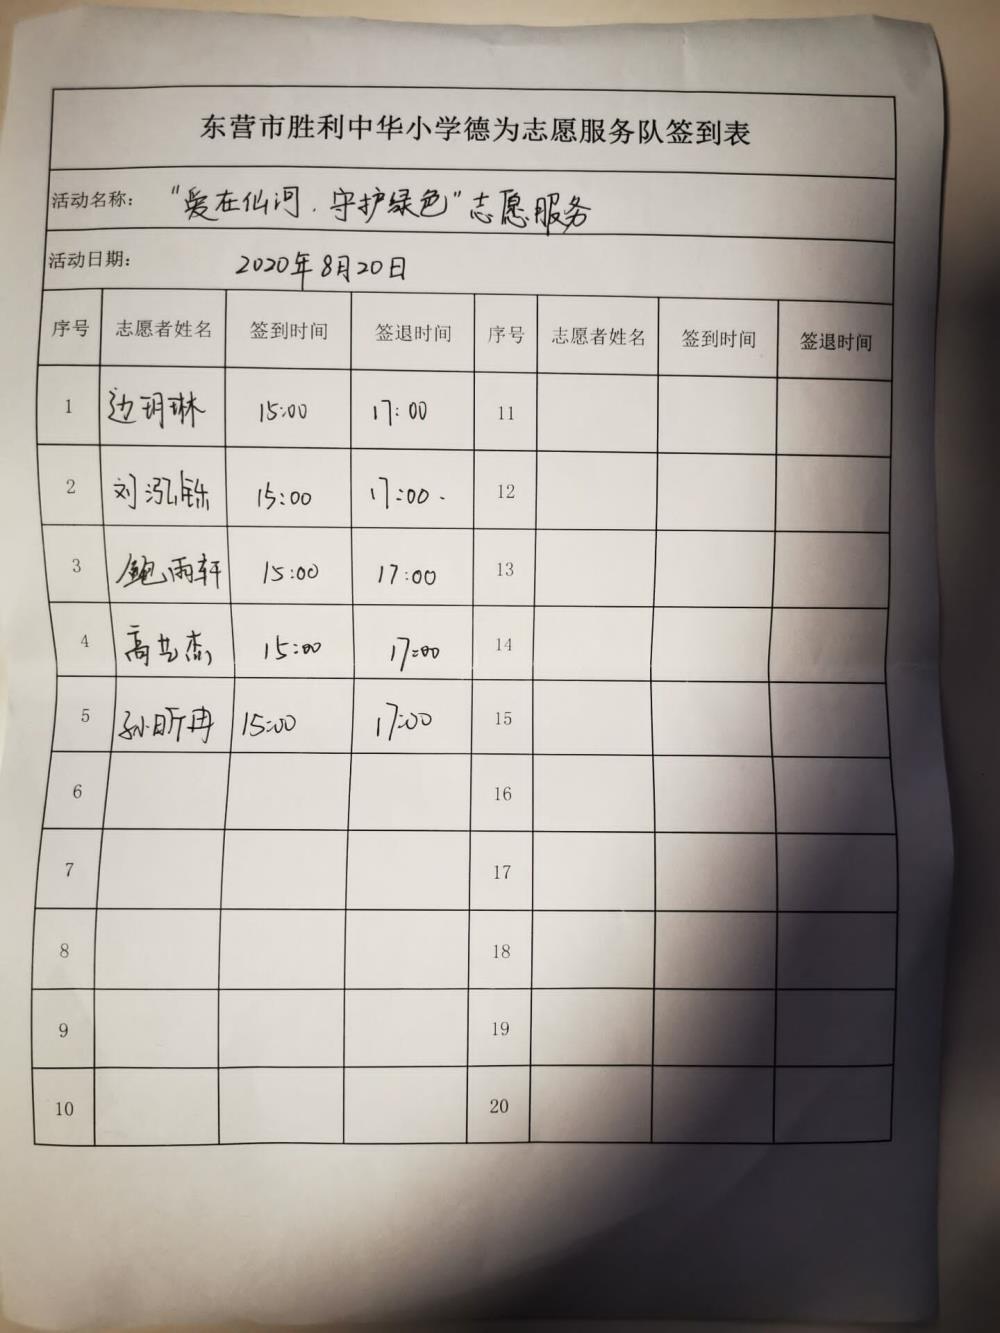 东营市胜利中华小学德为志愿服务队签到表
活动名称： “爱在仙河.守护绿色”志愿服务
活动日期： 2020年8月20日
序号 志愿者姓名 签到时间 签退时间 序号 志愿者姓名 签到时间 签退时间
1 边玥琳 15:00 17:00 11
2 刘泓铄 15:00 17:00. 12
3 鲍雨轩 15:00 17:00 13
4 高艺杰 15:00 17:00 14
5 孙昕冉 15:00 17:00 15
6 16
7 17
8 18
9 19
10 20